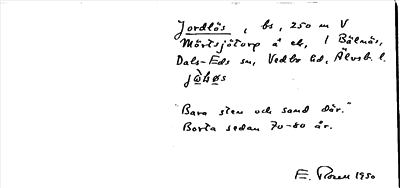 Jordlös, bs, 250 m V
Mörtsjötorp å ek, i Bälnäs,
Dals-Eds sn, Vedbo hd, Älvsb. l.
"Bara sten och sand där."
Borta sedan 70-80 år.
E. Rosell 1950